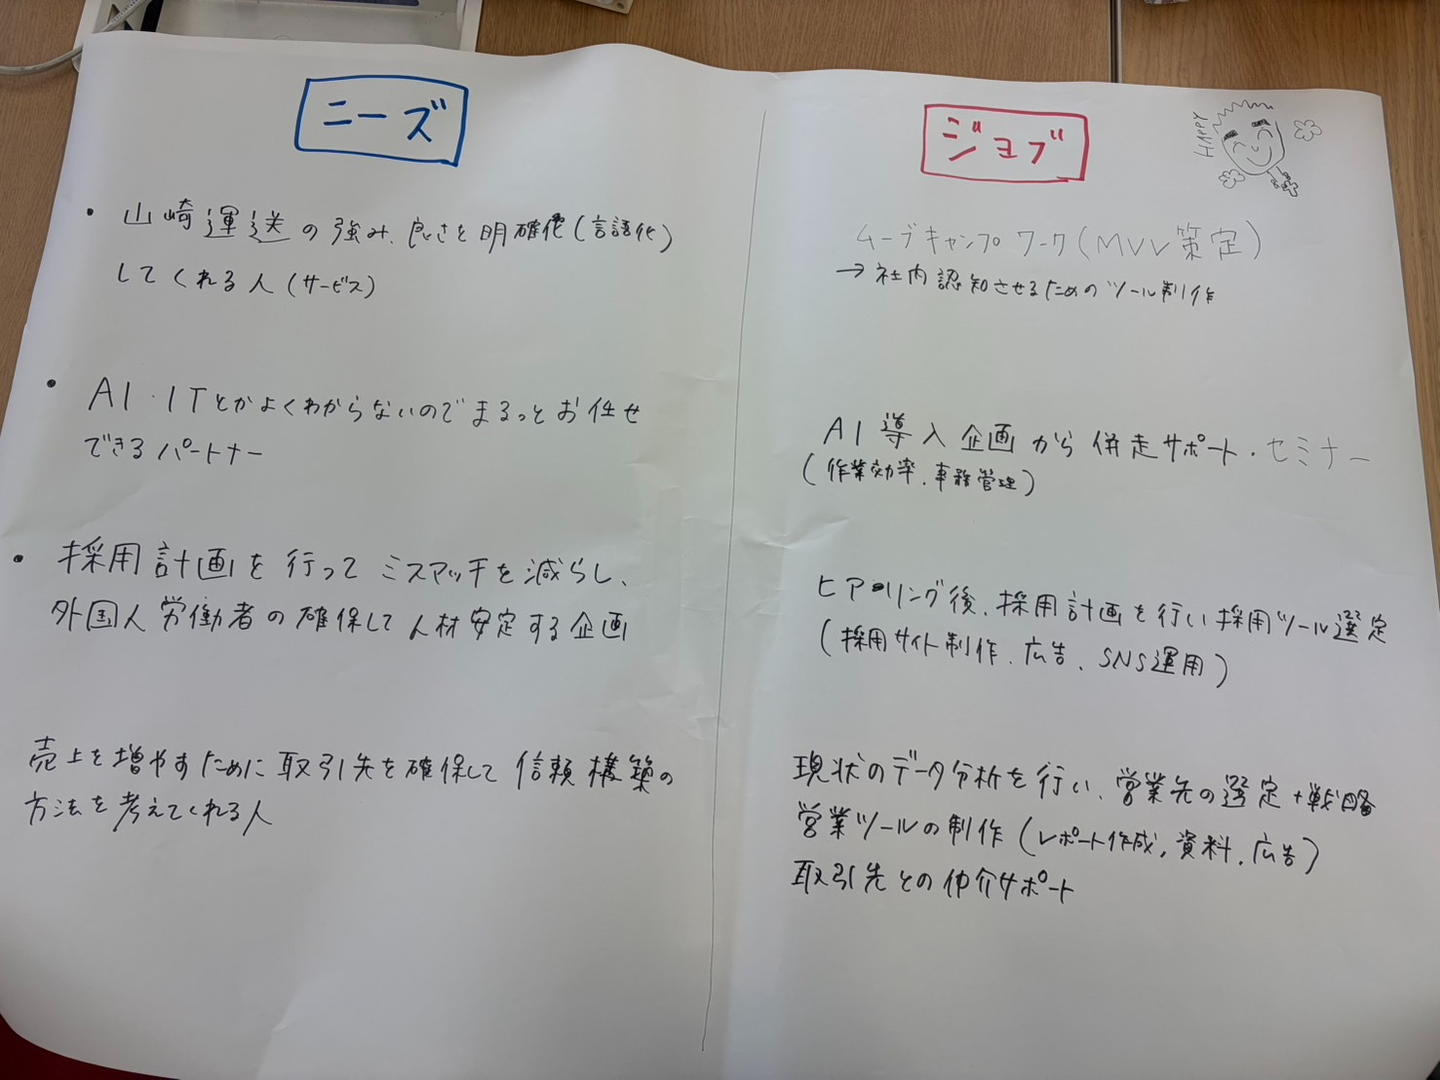 ニーズ
・山崎運送の強み、良さを明確化(言語化)
してくれる人(サービス)
・AI・ITとかよくわからないのでまるっとお任せ
できるパートナー
・採用計画を行ってミスマッチを減らし、
外国人労働者の確保して人材安定する企画
売上を増やすために取引先を確保して信頼構築の
方法を考えてくれる人
ジョブ
HAPPY
ムーブキャンプワーク(MVV策定)
→社内認知させるためのツール制作
AI導入企画から併走サポート・セミナー
(作業効率、事務管理)
ヒアリング後、採用計画を行い採用ツール選定
(採用サイト制作、広告、SNS運用)
現状のデータ分析を行い、営業先の選定+戦略
営業ツールの制作(レポート作成,資料,広告)
取引先との仲介サポート